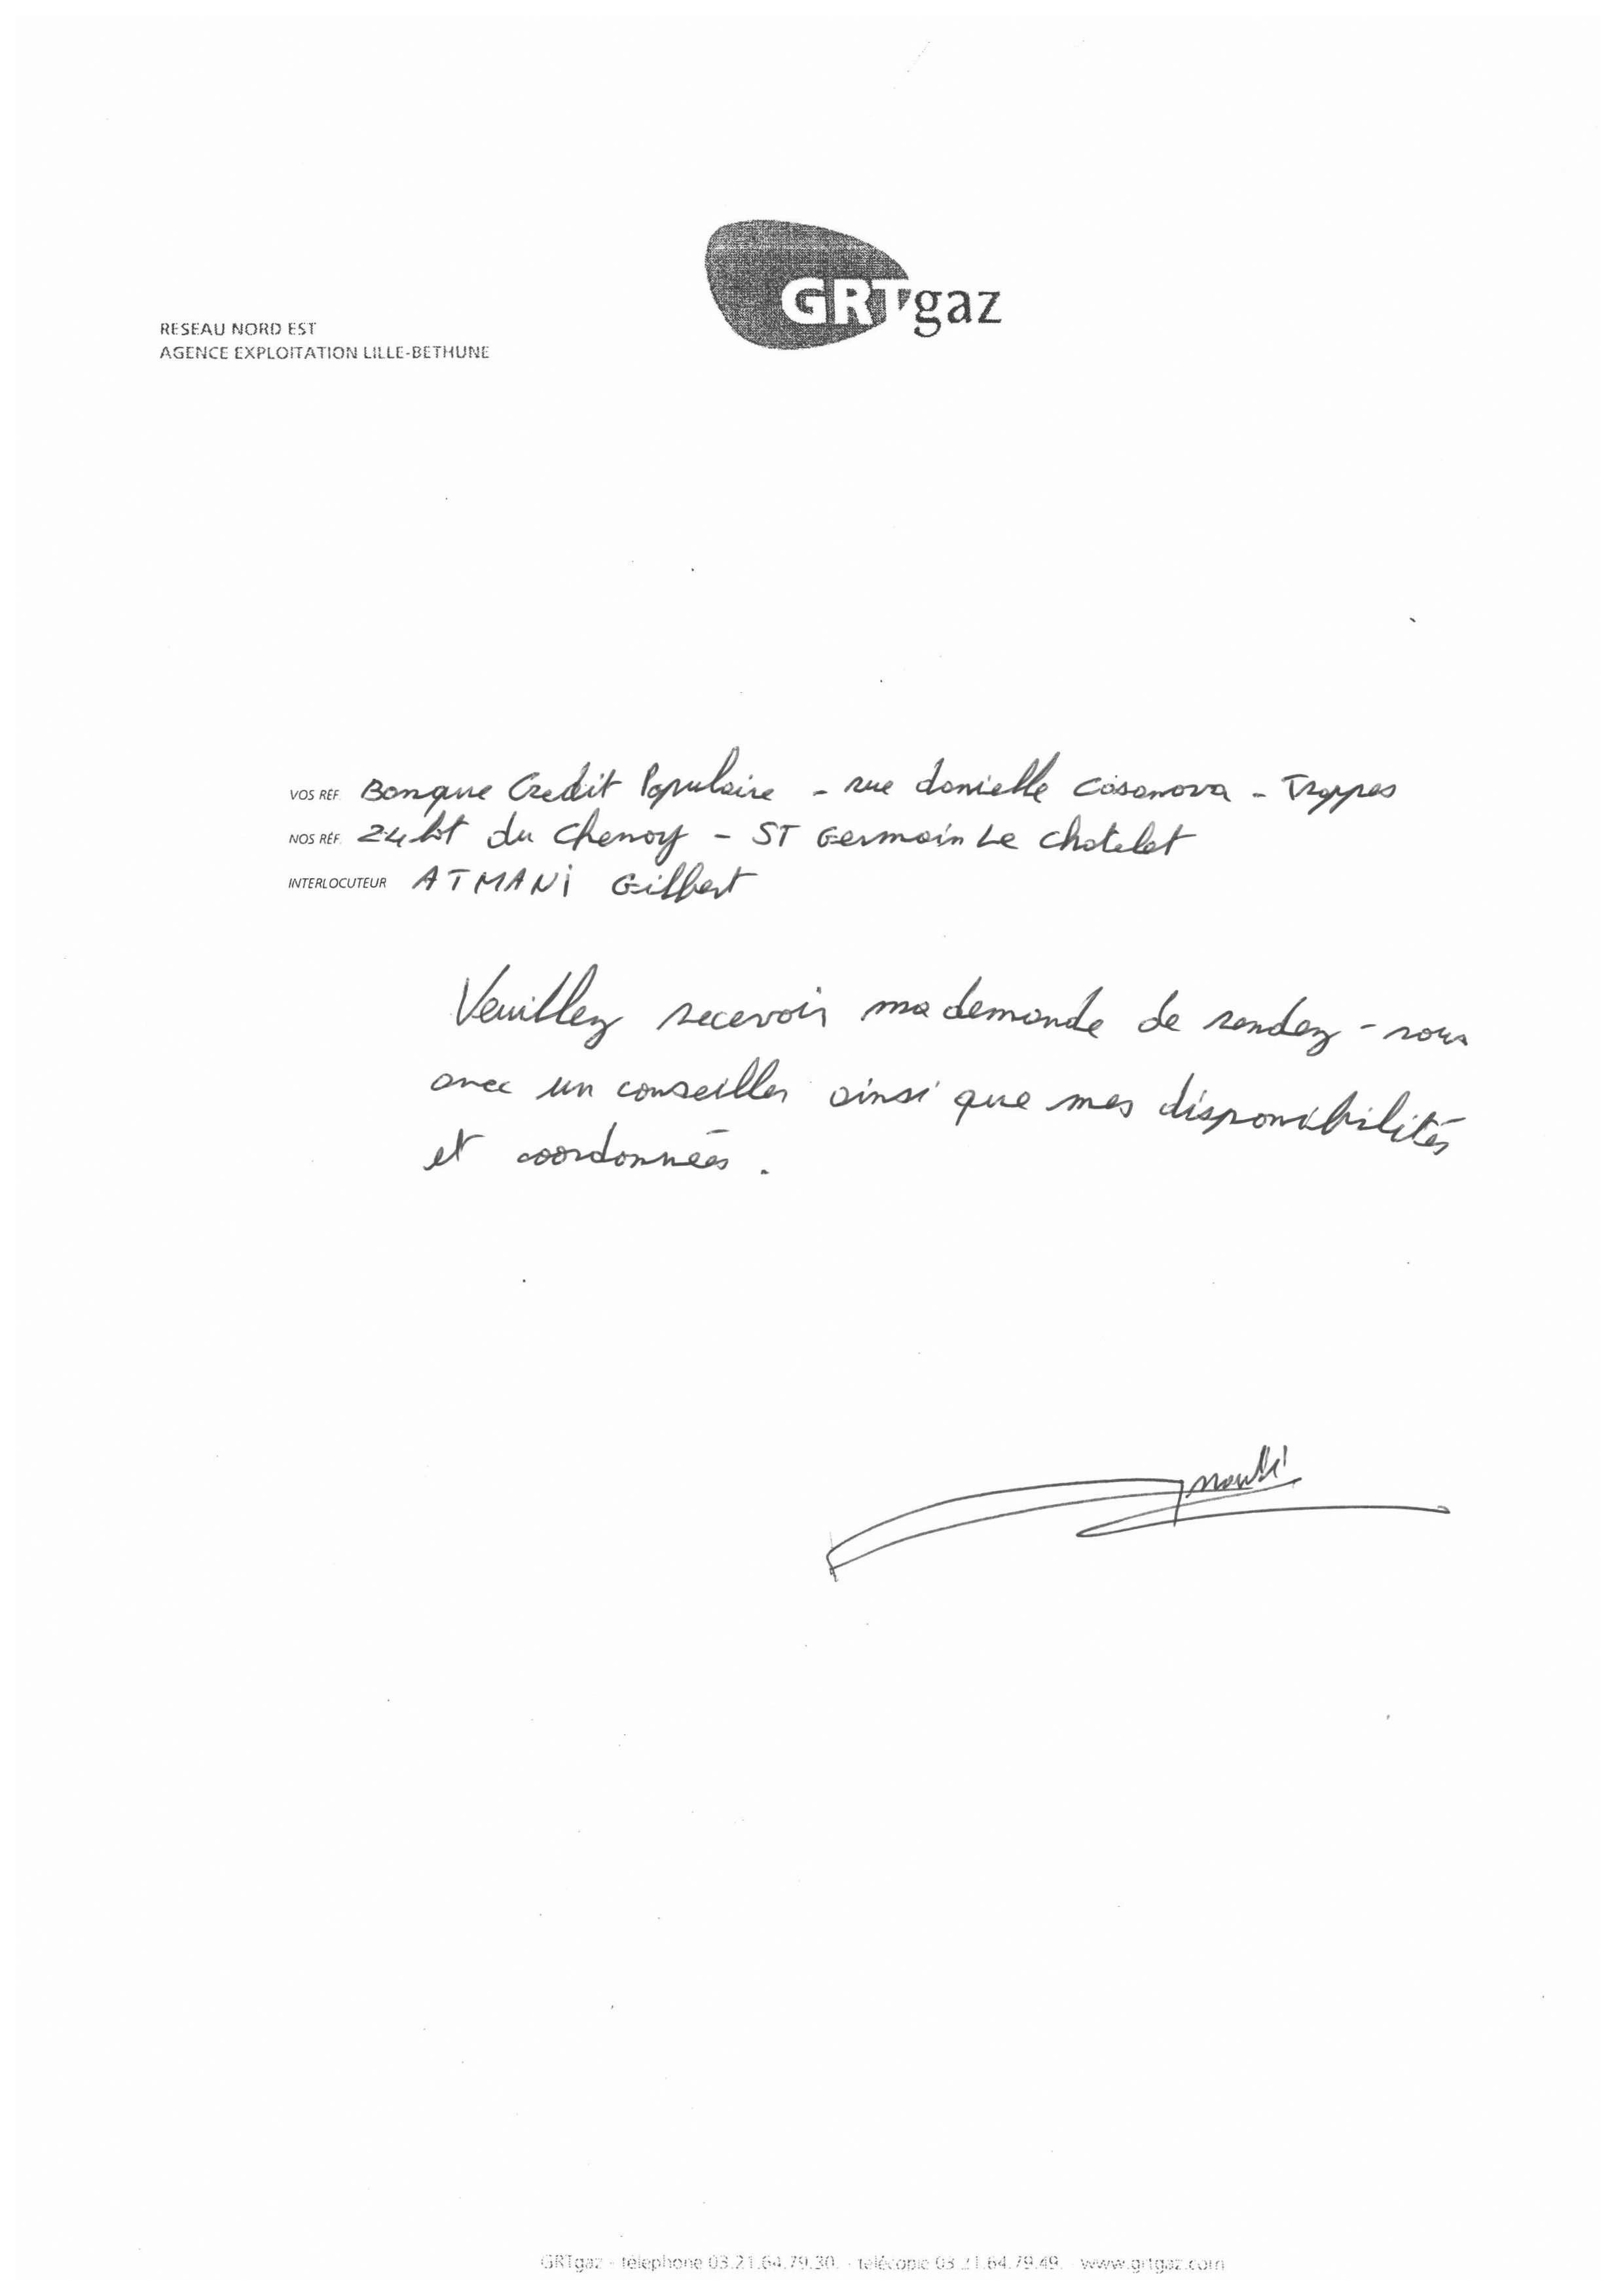 GRTgaz
RESEAU NORD EST
AGENCE EXPLOITATION LILLE-BETHUNE
VOS RÉF. Banque Credit Populaire - rue danielle Casanova - Trappes
NOS RÉF. 24 lot du Chenoy - ST Germain Le Chatelet
INTERLOCUTEUR ATMANI Gilbert
Veuillez recevoir ma demande de rendez-vous
avec un conseiller ainsi que mes disponibilités
et coordonnées.
GRTgaz - téléphone 03.21.64.79.30. - télécopie 03.21.64.79.49. - www.grtgaz.com